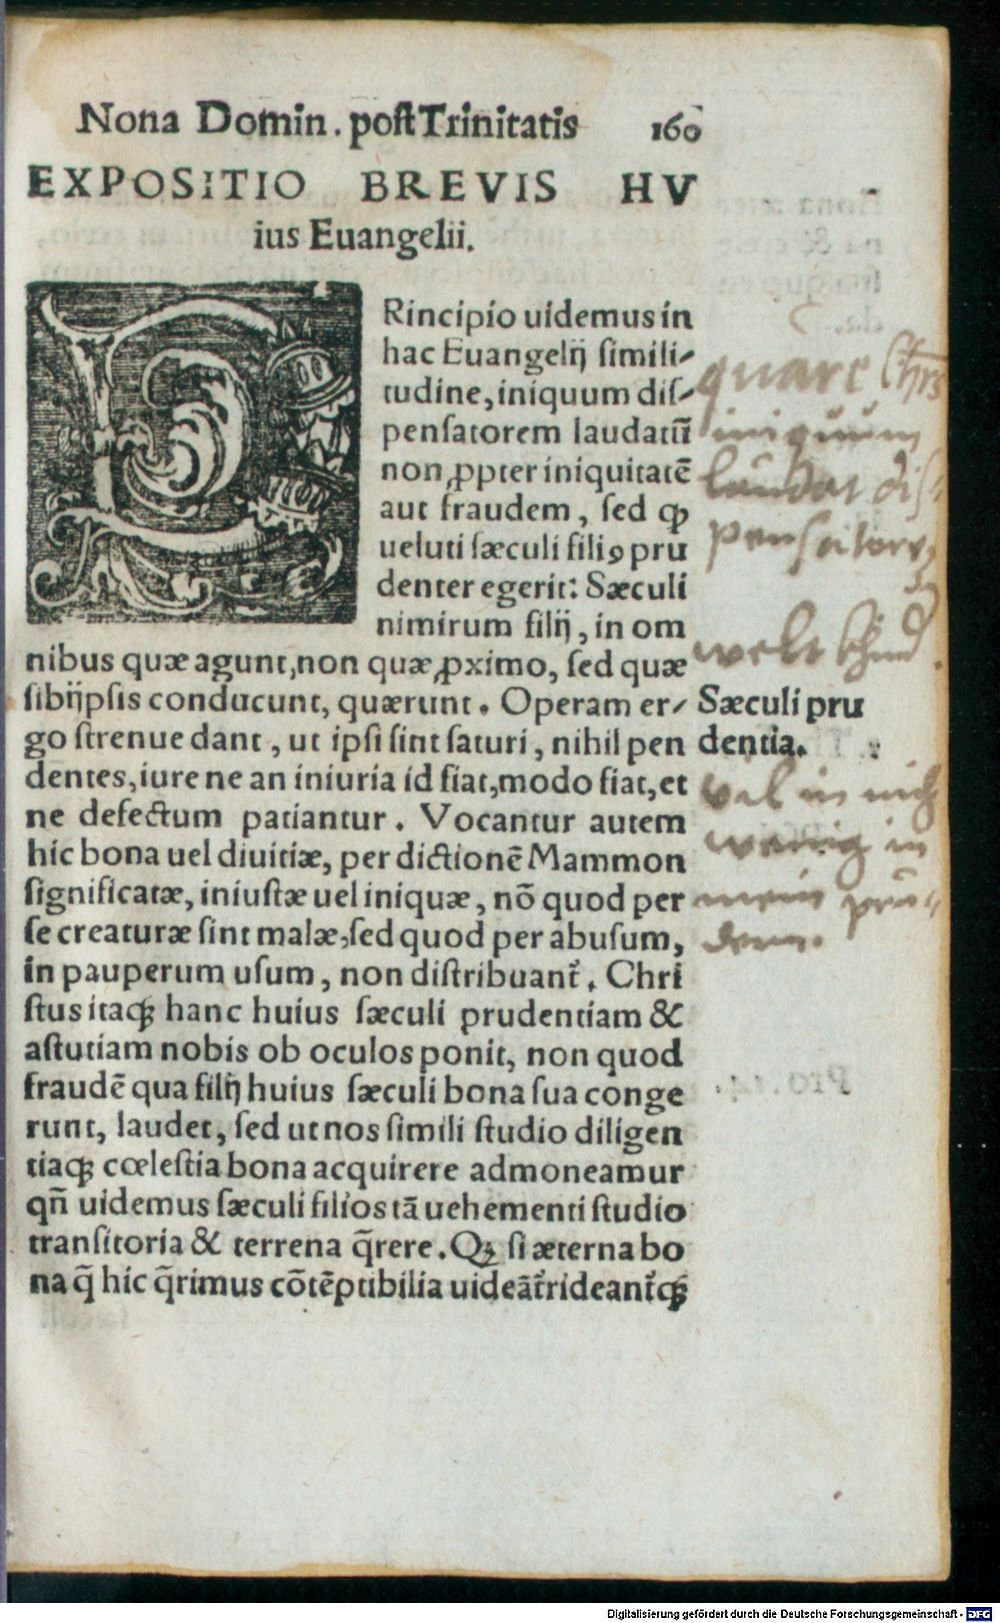 Nona Domin. post Trinitatis 160
EXPOSITIO BREVIS HV
ius Euangelii.
PRincipio uidemus in
hac Euangelij simili-
tudine, iniquum dis-
pensatorem laudatū
non ꝓpter iniquitatē
aut fraudem, sed ꝙ
ueluti sæculi filiꝰ pru
denter egerit: Sæculi
nimirum filij, in om
nibus quæ agunt, non quæ ꝓximo, sed quæ
sibijpsis conducunt, quærunt. Operam er-
go strenue dant, ut ipsi sint saturi, nihil pen
dentes, iure ne an iniuria id fiat, modo fiat, et
ne defectum patiantur. Vocantur autem
hic bona uel diuitiæ, per dictionē Mammon
significatæ, iniustæ uel iniquæ, nō quod per
se creaturæ sint malæ, sed quod per abusum,
in pauperum usum, non distribuant᷑. Chri
stus itaqꝫ hanc huius sæculi prudentiam &
astutiam nobis ob oculos ponit, non quod
fraudē qua filij huius sæculi bona sua conge
runt, laudet, sed ut nos simili studio diligen
tiaqꝫ cœlestia bona acquirere admoneamur
qn̄ uidemus sæculi filios tā uehementi studio
transitoria & terrena q̄rere. Qꝫ si æterna bo
na q̄ hic q̄rimus cōtēptibilia uideāt᷑ rideant᷑qꝫ
quare Chrs
iniquum
laudat dis
pensatorē
welt
Sæculi pru
dentia.
wenig in
Digitalisierung gefördert durch die Deutsche Forschungsgemeinschaft - DFG